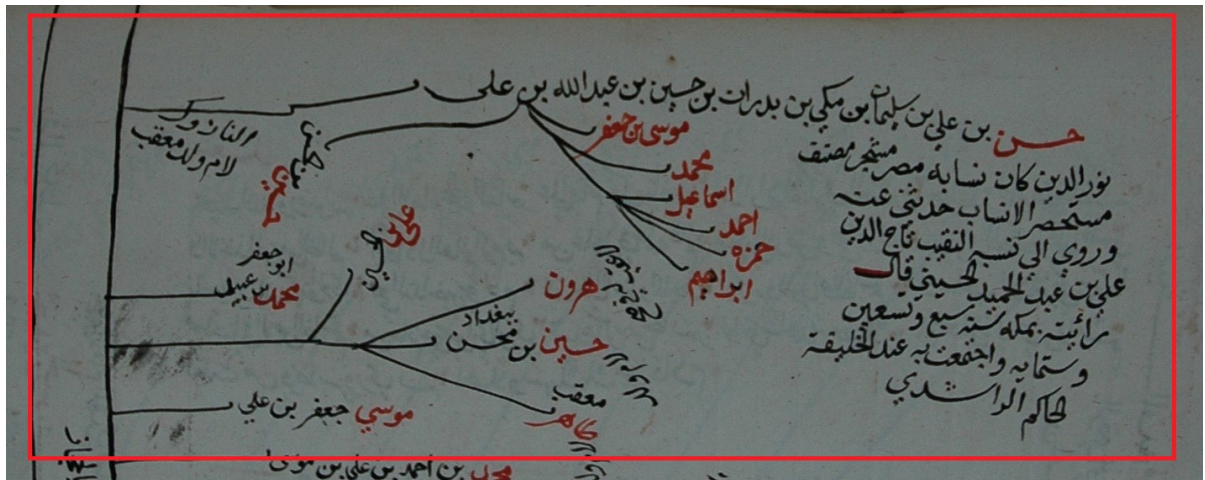 حسن بن علي بن سليمان بن مكي بن بدران بن حسين بن عبدالله بن على
نور الدين كان نسابه مصر مشجر مصنف
مستحضر الانساب حدثني عنه
وروي الي نسبه النقيب تاج الدين
علي بن عبد الحميد الحسيني قال
رائيته بمكه سنه سبع وتسعين
وستمايه واجتمعت به عند الخليفة
الحاكم الراشدي
موسى بن جعفر
محمد
اسماعيل
احمد
حمزه
ابراهيم
لام ولد معقب
حسين بن محسن
علي بن الحسين
ابو جعفر
محمد بن عبيدل
هرون
ببغداد
حسين بن محسن
معقب
طاهر
موسي جعفر بن علي
محمد بن احمد بن على بن موسى